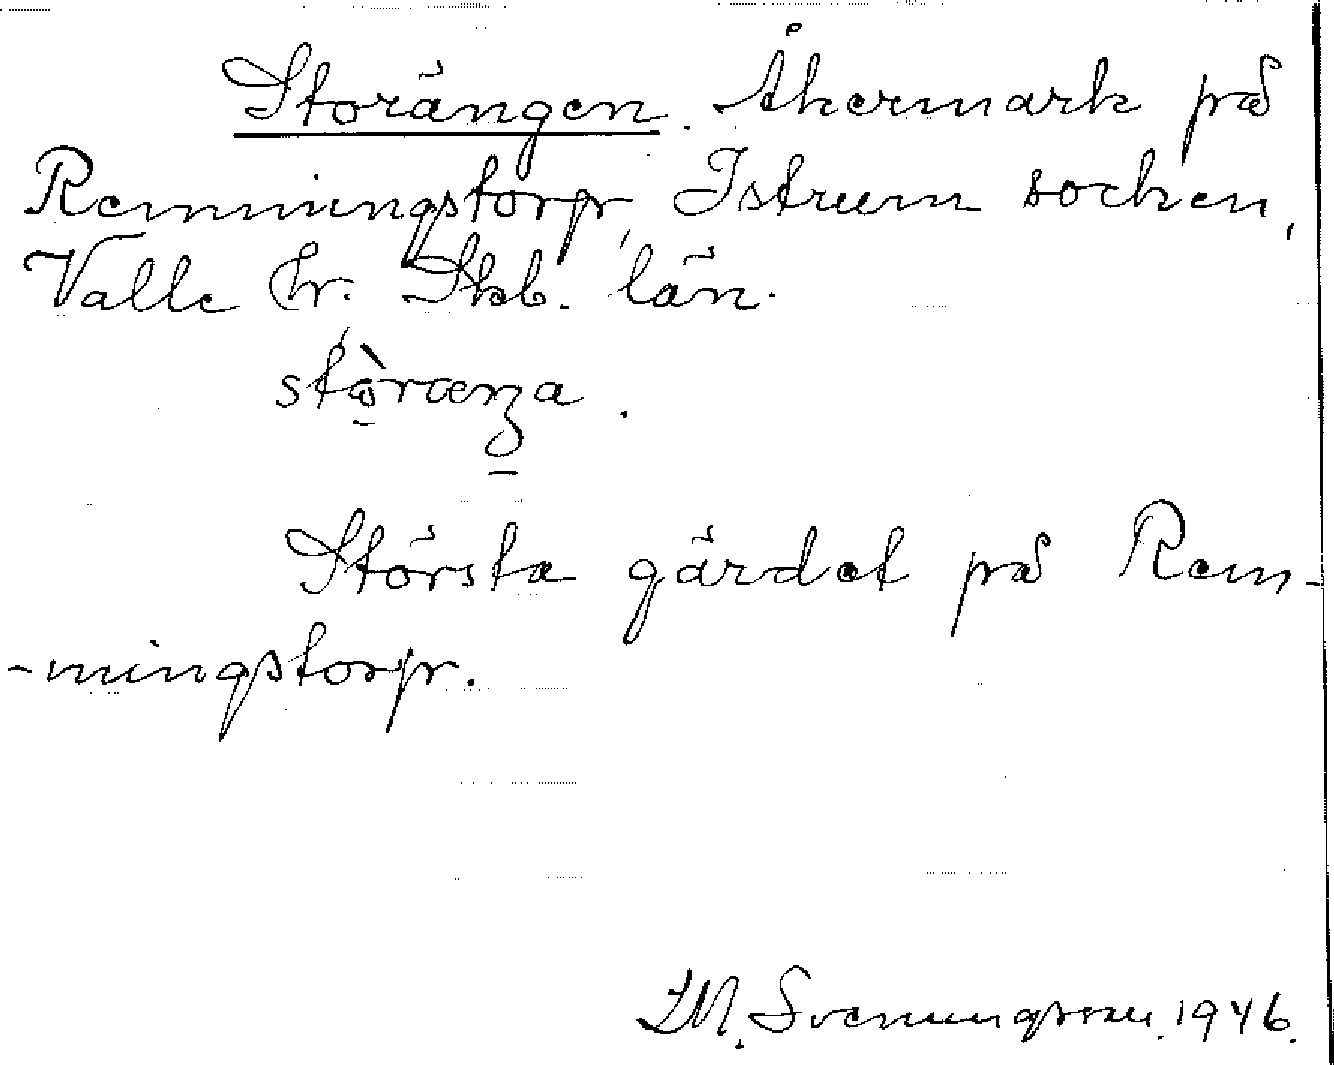 Storängen. Åkermark på
Remmingstorp, Istrum socken,
Valle hr. Skb. län.
Största gärdet på Rem-
-mingstorp.
Svenungsson. 1946.